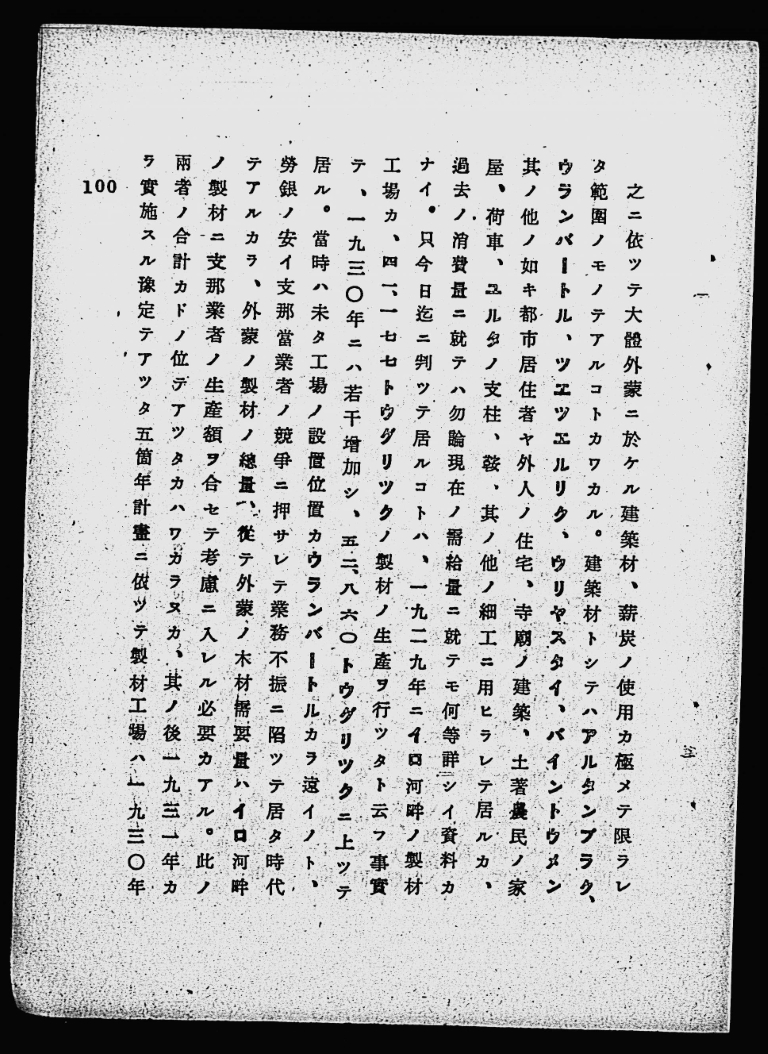 之ニ依ツテ大體外蒙ニ於ケル建築材、薪炭ノ使用カ極メテ限ラレ
タ範圍ノモノテアルコトカワカル。建築材トシテハアルタンブラク、
ウランバートル、ツエツエルリク、ウリヤスタイ、バイントウメン
其ノ他ノ如キ都市居住者ヤ外人ノ住宅、寺廟ノ建築、土著農民ノ家
屋、荷車、ユルタノ支柱、鞍、其ノ他ノ細工ニ用ヒラレテ居ルカ、
過去ノ消費量ニ就テハ勿論現在ノ需給量ニ就テモ何等詳シイ資料カ
ナイ。只今日迄ニ判ツテ居ルコトハ、一九二九年ニイロ河畔ノ製材
工場カ、四一、一七七トウグリツクノ製材ノ生産ヲ行ツタト云フ事實
テ、一九三〇年ニハ若干增加シ、五二、八六〇トウグリツクニ上ツテ
居ル。當時ハ未タ工場ノ設置位置カウランバートルカラ遠イノト、
勞銀ノ安イ支那當業者ノ競爭ニ押サレテ業務不振ニ陷ツテ居タ時代
テアルカラ、外蒙ノ製材ノ總量、從テ外蒙ノ木材需要量ハイロ河畔
ノ製材ニ支那業者ノ生產額ヲ合セテ考慮ニ入レル必要カアル。此ノ
兩者ノ合計カドノ位デアツタカハワカラヌカ、其ノ後一九三一年カ
ラ實施スル豫定テアツタ五箇年計畫ニ依ツテ製材工場ハ一九三〇年
100